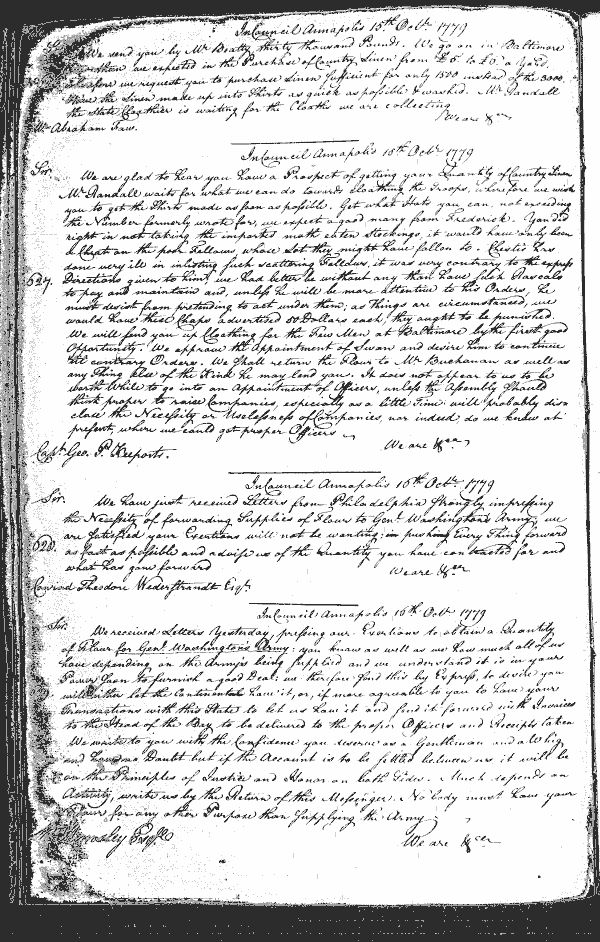 In Council Annapolis 15th Octr 1779
Sir
We send you by Mr Beatty thirty thousand Pounds. We go on in Baltimore
than we expected in the Purchase of Country Linen from £5 to £6. a Yard,
wherefore we request you to purchase Linen Sufficient for only 1500 instead of the 3000.
Have the Linen made up into Shirts as quick as possible & washed. Mr Randall
the State Cloathier is waiting for the Cloaths we are collecting
We are &ca
Mr Abraham Faw.
In Council Annapolis 15th Octr 1779
Sir.
We are glad to hear you have a Prospect of getting your Quantity of Country Linen
Mr Randall waits for what we can do towards Cloathing the Troops, wherefore we wish
you to get the Shirts made as soon as possible. Get what Hats you can, not exceeding
the Number formerly wrote for, we expect a good many from Frederick. You did
right in not taking the imported moth eaten Stockings, it would have only been
a Cheat on the poor Fellows whose Lot they might have fallen to. Chester has
done very ill in inlisting such scattering Fellows, it was very contrary to the express
627. Directions given to him, we had better be without any than have such Rascals
to pay and maintain and, unless he will be more attentive to his Orders, he
must desist from pretending to act under them; as things are circumstanced, we
would have these Chaps advertised 50 Dollars each, they ought to be punished.
We will send you up Cloathing for the Few Men at Baltimore by the first good
Opportunity. We approve the Appointment of Swan and desire him to continue
till contrary Orders. We Shall return the Flour to Mr Buchanan as well as
any Thing else of the Kind he may lend you. It does not appear to us to be
worth While to go into an Appointment of Officers, unless the Assembly Should
think proper to raise Companies, especially as a little Time will probably dis=
close the Necessity or Uselessness of Companies, nor indeed do we know at
present, where we could get proper Officers
We are &ca
Capt. Geo. P. Keeports.
In Council Annapolis 16th Octr 1779
Sir.
We have just received Letters from Philadelphia Strongly impressing
the Necessity of forwarding Supplies of Flour to Genl Washingtons Army, we
are satisfied your Exertions will not be wanting in pushing Every Thing forward
628. as fast as possible and advise us of the Quantity you have contracted for and
what has gone forward
We are &ca
Conrod Theodore Wederstrandt Esqr.
In Council Annapolis 16th Octr 1779
Sir.
We received Letters Yesterday, pressing our Exertions to obtain a Quantity
of Flour for Genl Washington's Army: you know as well as we how much all of us
have depending on the Armys being Supplied and we understand it is in your
Power soon to furnish a good Deal: we therefore send this by Express, to desire you
will either let the Continental have it, or, if more agreeable to you to have your
Transactions with this State to let us have it and send it forward with Invoices
to the Head of the Bay to be delivered to the proper Officers and Receipts taken
We write to you with the Confidence you deserve as a Gentleman and a Whig
and have no Doubt but if the Account is to be settled between us it will be
on the Principles of Justice and Honor on both Sides. Much depends on
Activity, write us by the Return of this Messenger. No body must have your
Flour for any other Purpose than Supplying the Army
We are &ca
Esqr